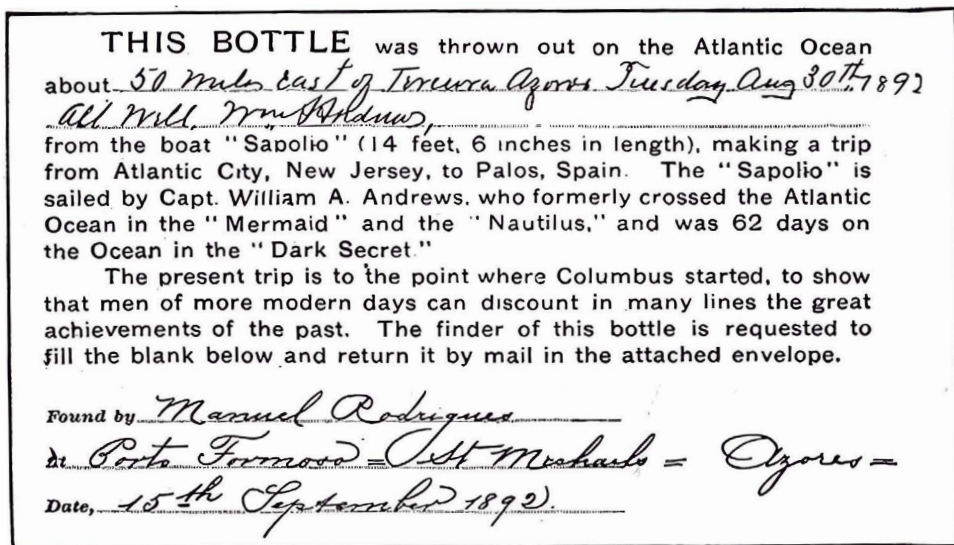 THIS BOTTLE was thrown out on the Atlantic Ocean
about 50 miles east of Terceira Azores Tuesday Aug 30th, 1892
All Well, Wm A Andrews,
from the boat "Sapolio" (14 feet, 6 inches in length), making a trip
from Atlantic City, New Jersey, to Palos, Spain. The "Sapolio" is
sailed by Capt. William A. Andrews, who formerly crossed the Atlantic
Ocean in the "Mermaid" and the "Nautilus," and was 62 days on
the Ocean in the "Dark Secret."
The present trip is to the point where Columbus started, to show
that men of more modern days can discount in many lines the great
achievements of the past. The finder of this bottle is requested to
fill the blank below and return it by mail in the attached envelope.
Found by Manuel Rodrigues
At Porto Formoso = St Michaels = Azores =
Date, 15th September 1892.